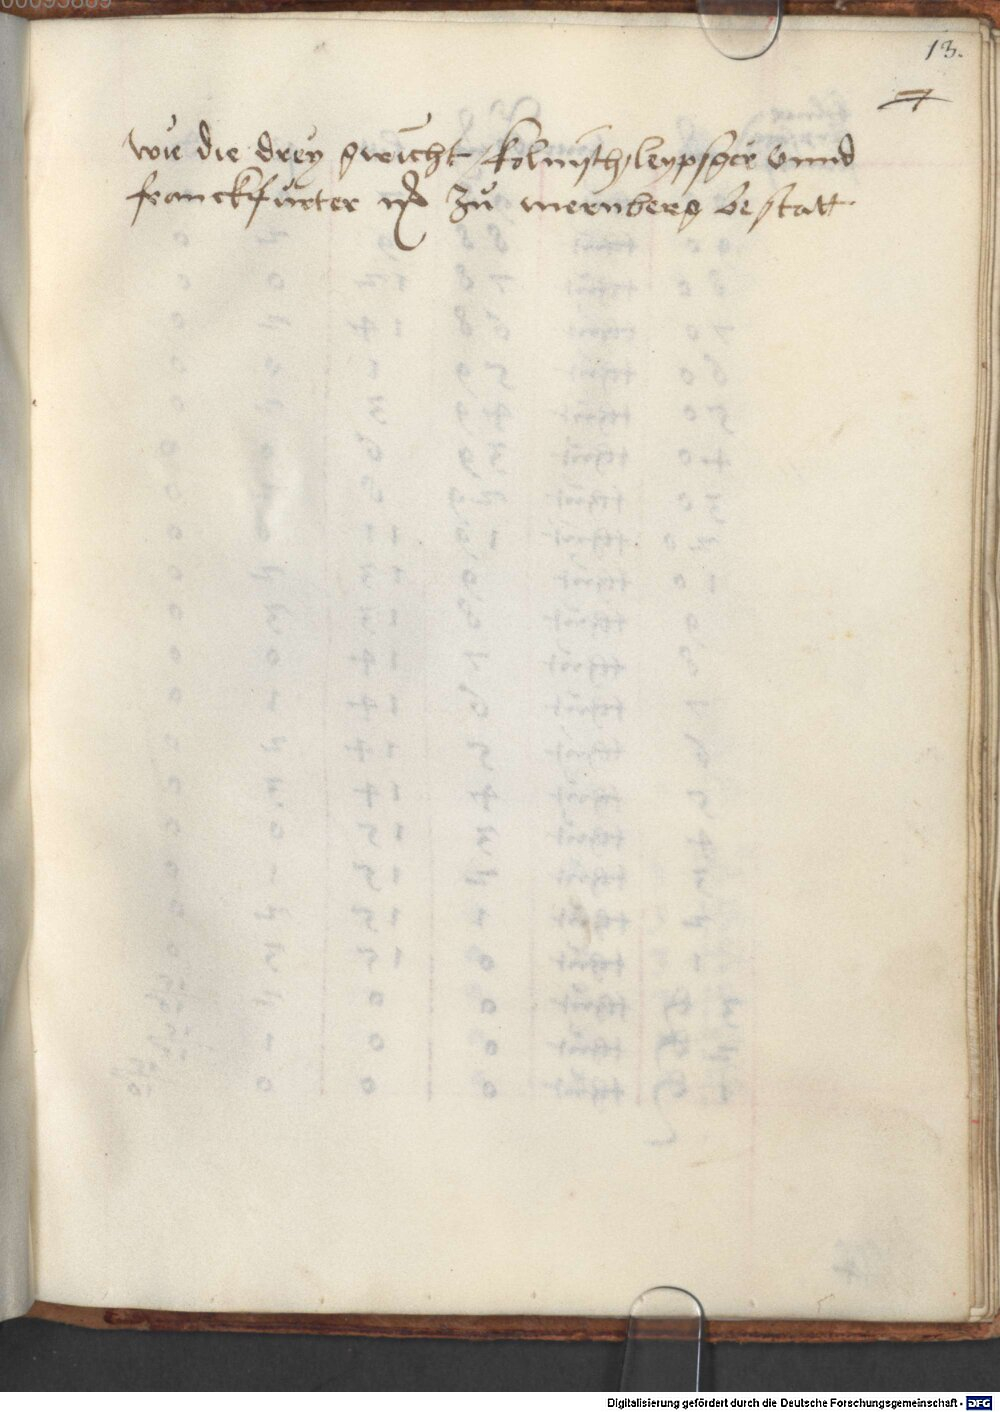 00095809
13.
wie die drey gwicht kolnisch leypsger vnnd
franckfurter zu nernberg bestatt
Digitalisierung gefördert durch die Deutsche Forschungsgemeinschaft - DFG